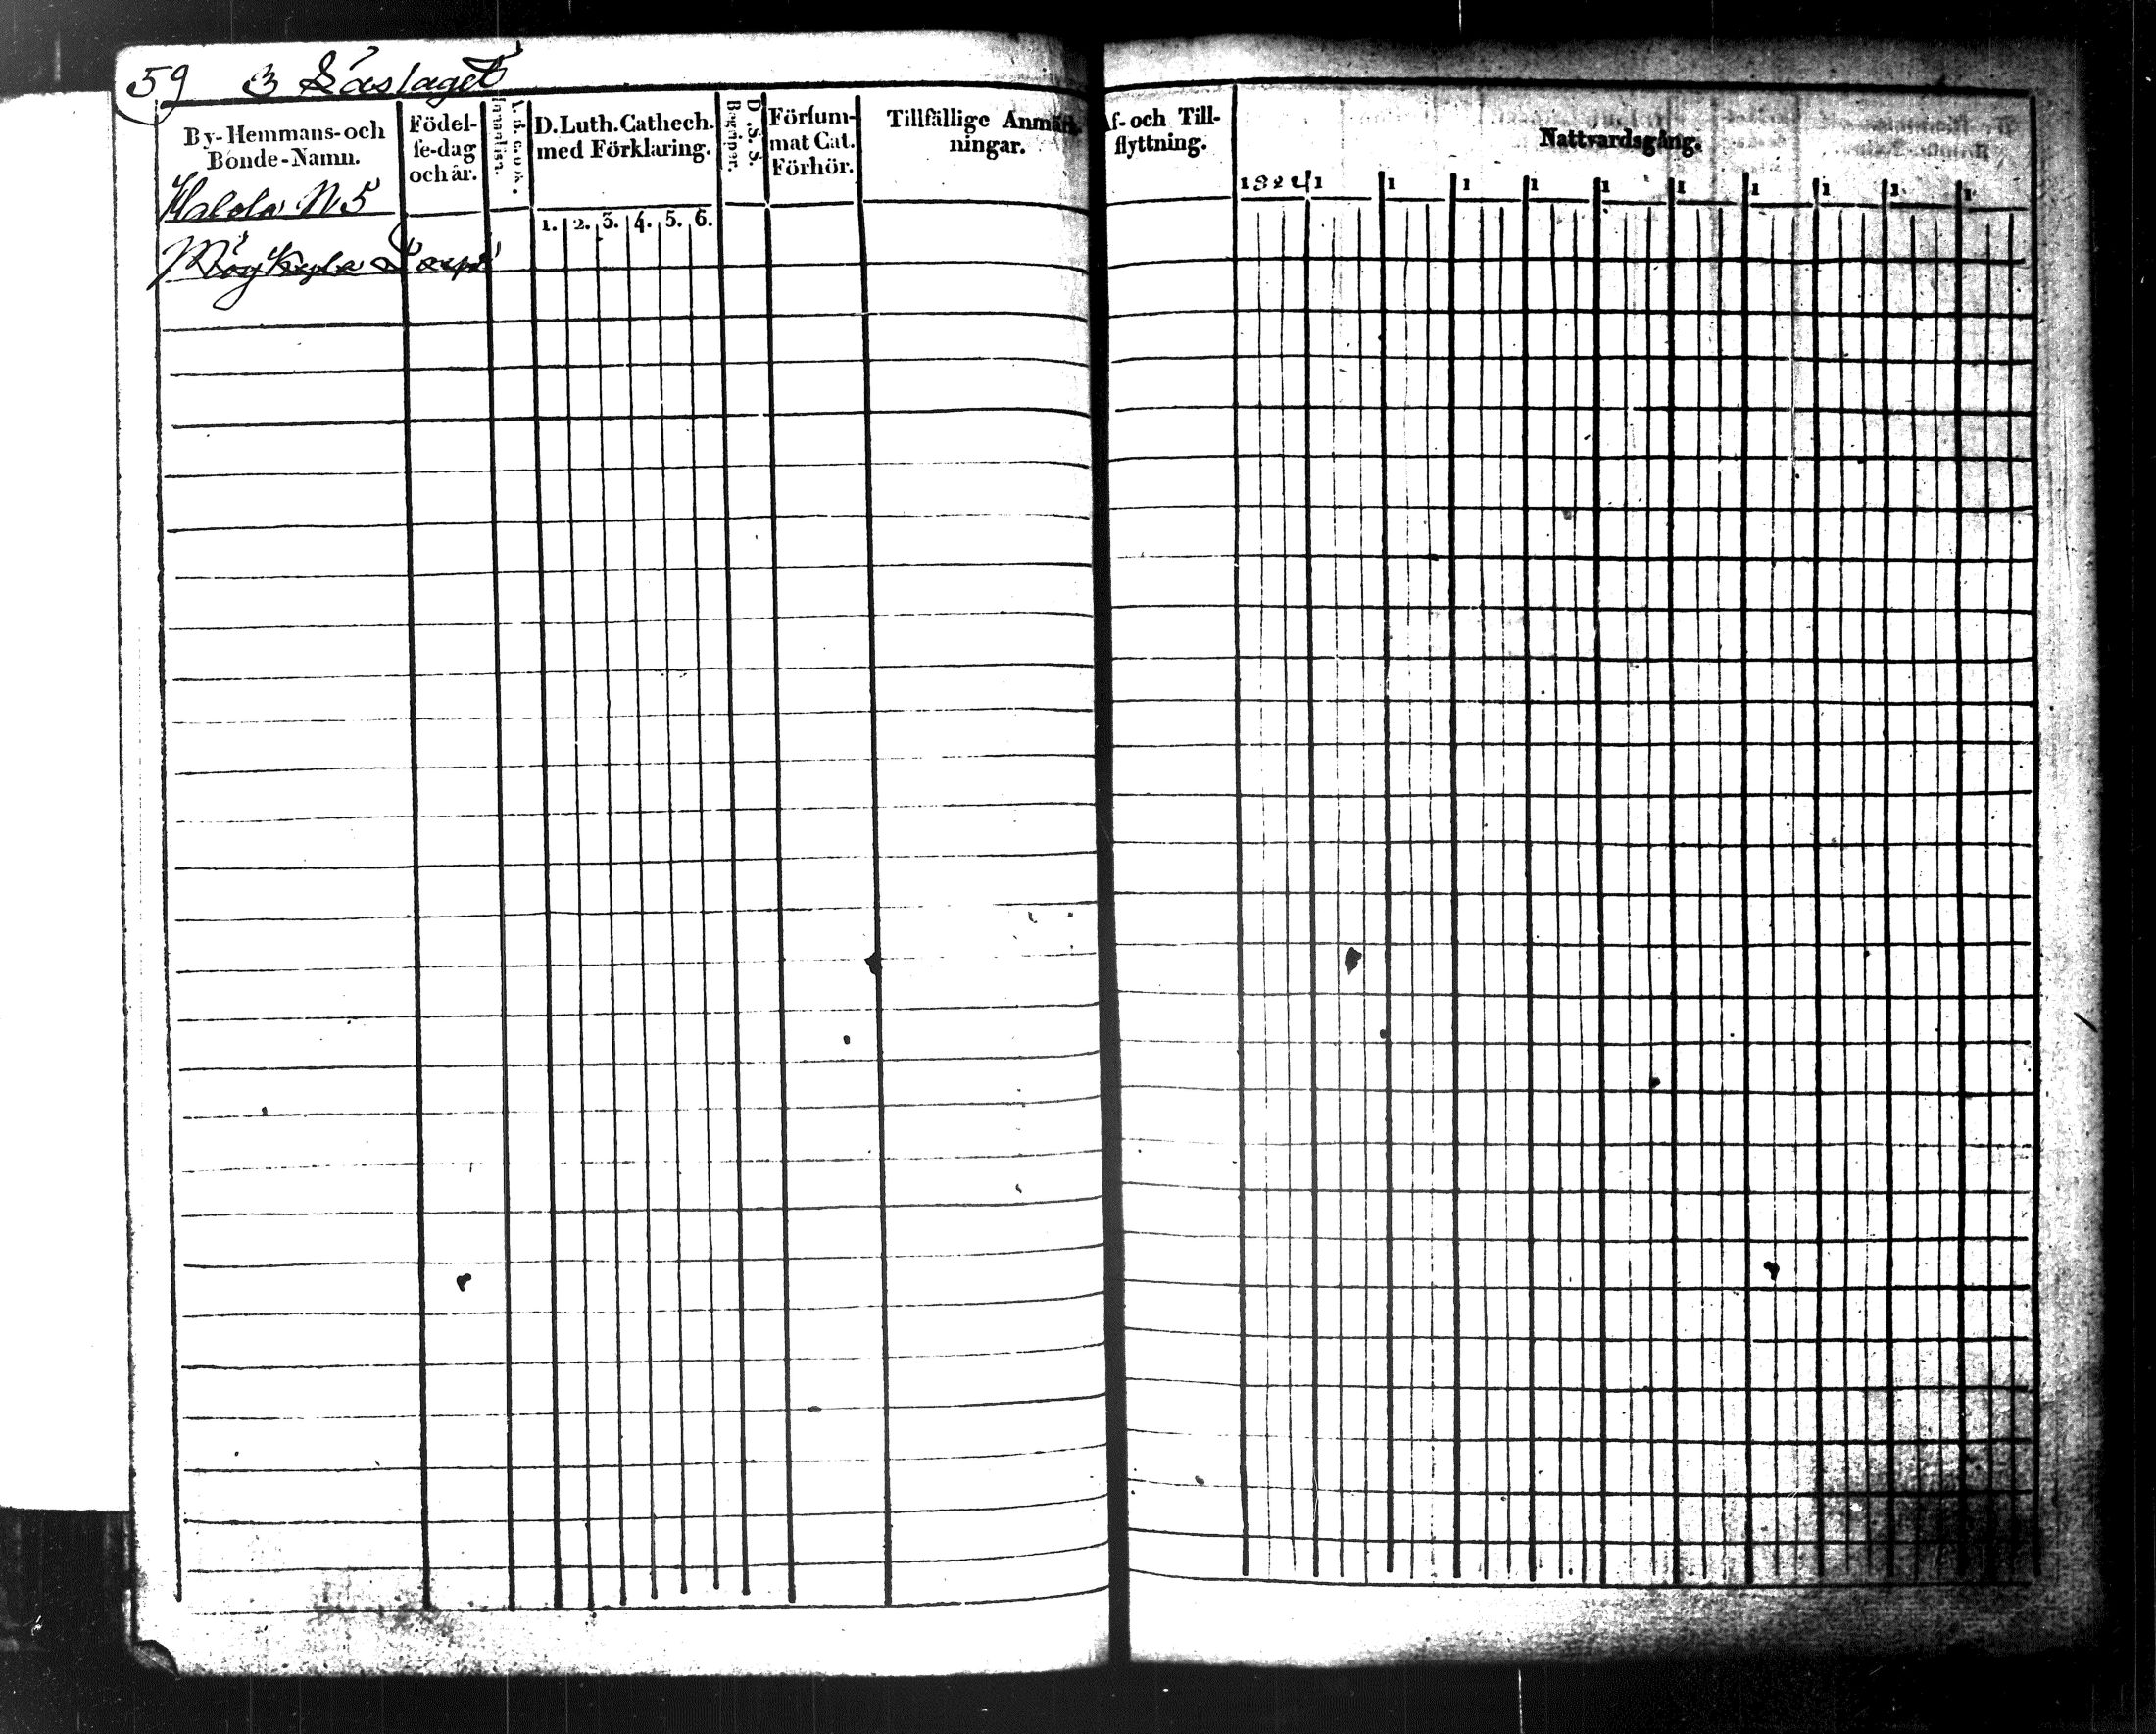 59 3 Läslaget
By-Hemmans- och
Bonde-Namn.
Födel-
se-dag
och år.
A. b. c. o. k.
Innanläsn.
D. Luth. Cathech.
med Förklaring.
D. S. S.
Begriper.
Försum-
mat Cat.
Förhör.
Tillfällige Anmärk-
ningar.
Af- och Till-
flyttning.
Nattvardsgång.
1824 1 1 1 1 1 1 1 1 1 1
1. 2. 3. 4. 5. 6.
N 5